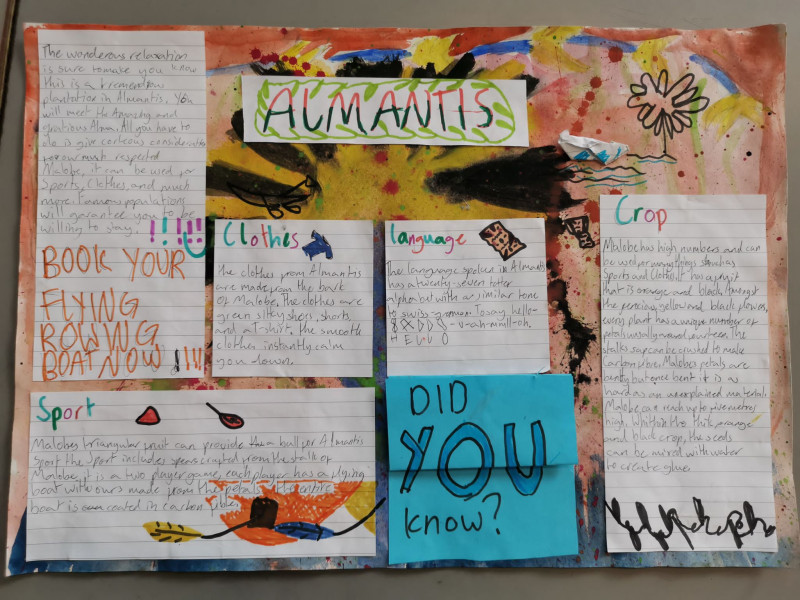 ALMANTIS
The wonderous relaxation
is sure to make you know
this is a tremendous
plantation in Almantis. You
will meet the Amazing and
gratious Alman. All you have to
do is give corteous consideration
respected
Malobe, it can be used for
Sports, Clothes, and much
more. Famous populations
will garantee you to be
willing to stay.
!!!!!
BOOK YOUR
FLYING
ROWING
BOAT NOW !!!!
Clothes
The clothes from Almantis
are made from the bark
of Malobe. The clothes are
green silky shoes, shorts,
and a t-shirt, the smooth
clothes instantly calm
you down.
language
The language spoken in Almantis
has a twenty-seven letter
alphabet with a similar tone
to swiss-german. To say hello-
-v-ah-mull-oh.
H E L L O
Crop
Malobe has high numbers and can
be used for many things such as
Sports and Clothes. It has a fruit
that is orange and black. Amongst
the yellow and black flowers,
every plant has a unique number of
petals usually around seventeen. The
stalks sap can be crafted to make
carbon fibre. Malobes petals are
bendy but once bent it is as
hard as an unexplained material.
Malobe can reach up to five metres
high. Whithin the thik orange
and black crop, the seeds
can be mixed with water
to create glue.
Sport
Malobes triangular fruit can provide a ball for Almantis
Sport. The Sport includes spears crafted from the stalk of
Malobe, it is a two player game, each player has a flying
boat with oars made from the petals. the entire
boat is created in carbon fibre.
DID
YOU
know?